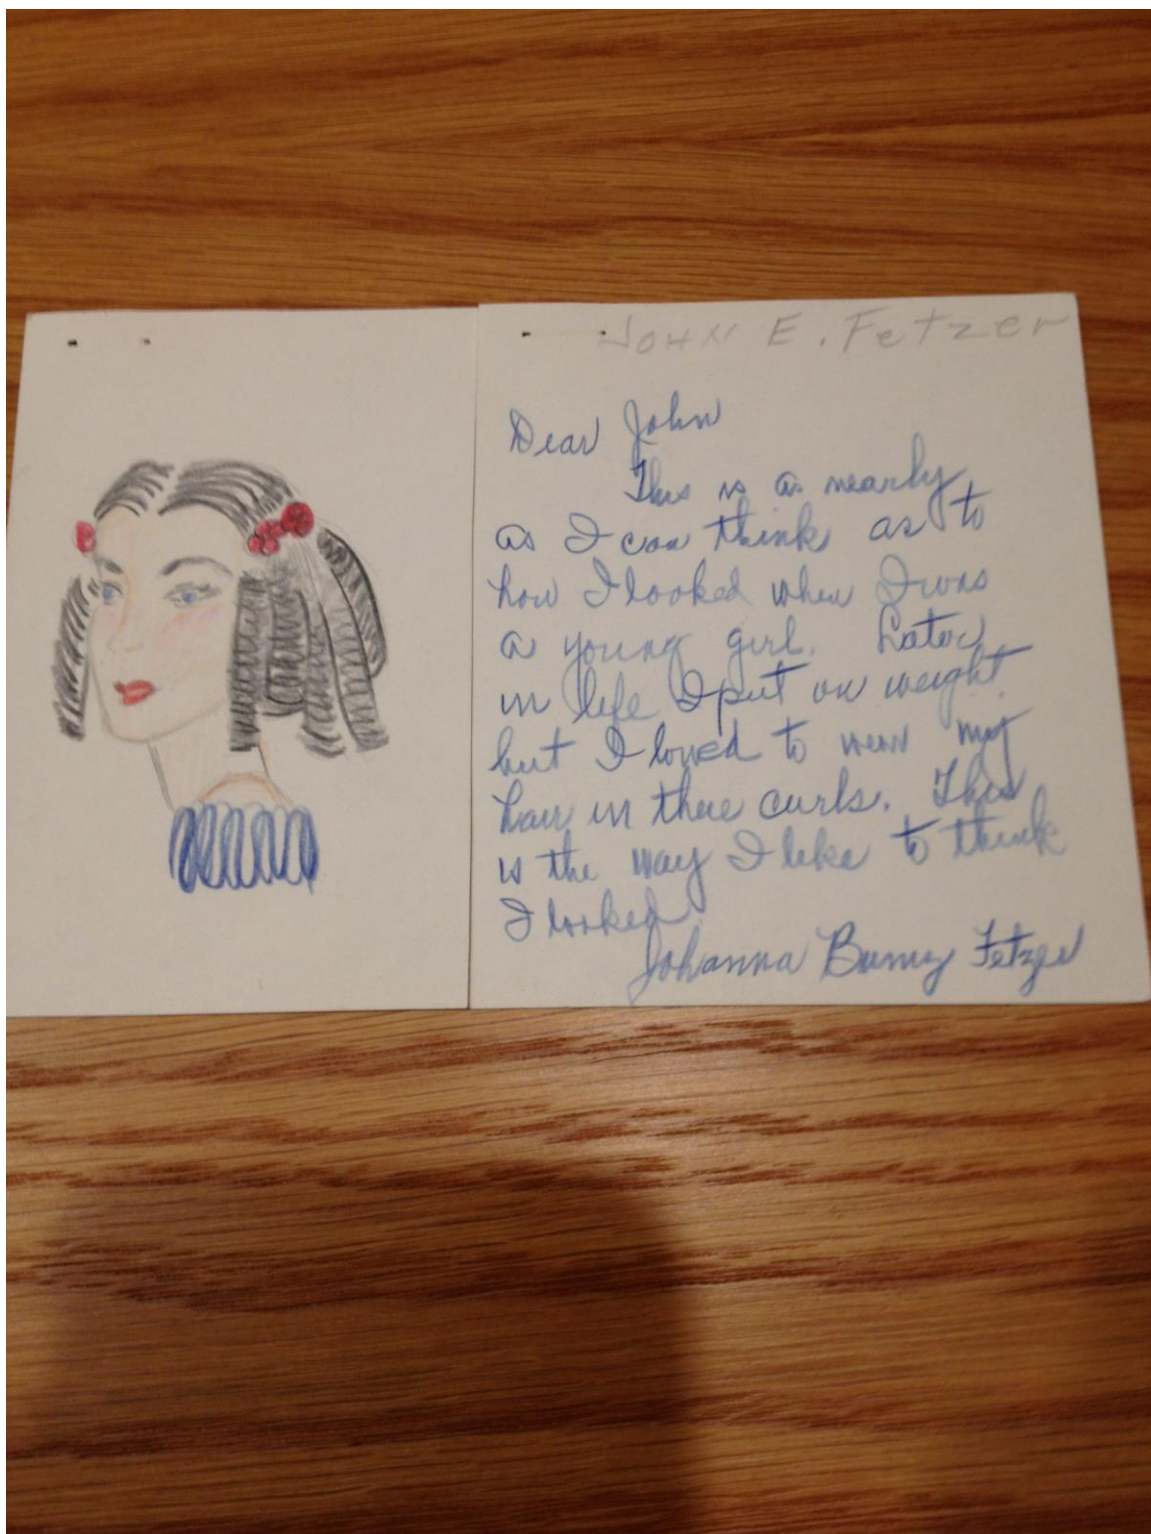 JOHN E. Fetzer
Dear John
This is as nearly
as I can think as to
how I looked when I was
a young girl. Later
in life I put on weight
but I loved to wear my
hair in these curls. This
is the way I like to think
I looked.
Johanna Fetzer